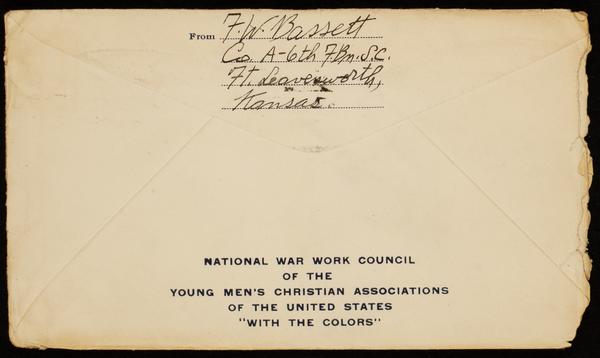 From F.W. Bassett
Co. A-6th F.Bn.S.C.
Ft. Leavenworth,
Kansas.
NATIONAL WAR WORK COUNCIL
OF THE
YOUNG MEN'S CHRISTIAN ASSOCIATIONS
OF THE UNITED STATES
"WITH THE COLORS"